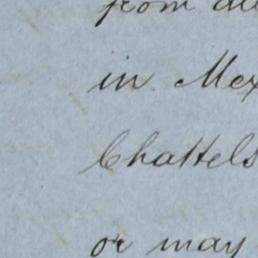 from
in Mex
Chattels
or may